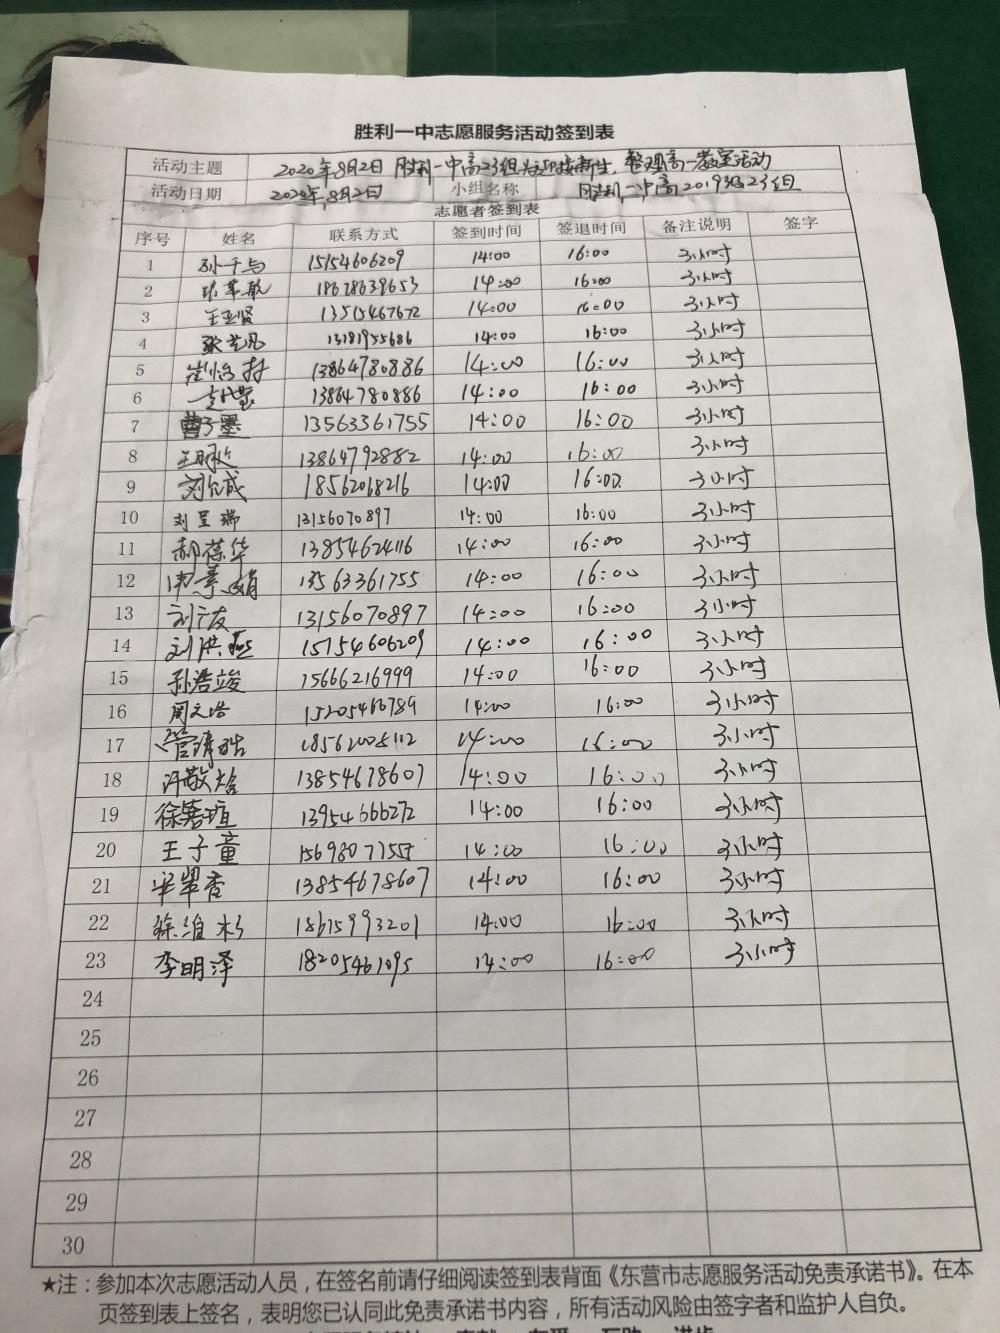 胜利一中志愿服务活动签到表
活动主题 2020年8月2日 胜利一中高23组 迎接新生,整理高一教室活动
活动日期 2020年8月2日 小组名称 胜利一中高2019级23组
志愿者签到表
序号 姓名 联系方式 签到时间 签退时间 备注说明 签字
1 15154606209 14:00 16:00 3小时
2 18678639653 14:00 16:00 3小时
3 王亚贤 13515467672 14:00 16:00 3小时
4 13181955686 14:00 16:00 3小时
5 13864780886 14:00 16:00 3小时
6 13864780886 14:00 16:00 3小时
7 曹子墨 13563361755 14:00 16:00 3小时
8 13864792882 14:00 16:00 3小时
9 刘允成 18562068216 14:00 16:00 3小时
10 刘昱瑞 13156070897 14:00 16:00 3小时
11 郝葆华 13854624116 14:00 16:00 3小时
12 13563361755 14:00 16:00 3小时
13 刘广友 13156070897 14:00 16:00 3小时
14 刘洪燕 15154606209 14:00 16:00 3小时
15 孙浩竣 15666216999 14:00 16:00 3小时
16 周文浩 15205460789 14:00 16:00 3小时
17 18562008112 14:00 16:00 3小时
18 许敬晗 13854678607 14:00 16:00 3小时
19 13954666272 14:00 16:00 3小时
20 王子童 14:00 16:00 3小时
21 13854678607 14:00 16:00 3小时
22 徐维杉 18615993201 14:00 16:00 3小时
23 李明泽 18205461095 14:00 16:00 3小时
24
25
26
27
28
29
30
★注:参加本次志愿活动人员,在签名前请仔细阅读签到表背面《东营市志愿服务活动免责承诺书》。在本
页签到表上签名,表明您已认同此免责承诺书内容,所有活动风险由签字者和监护人自负。